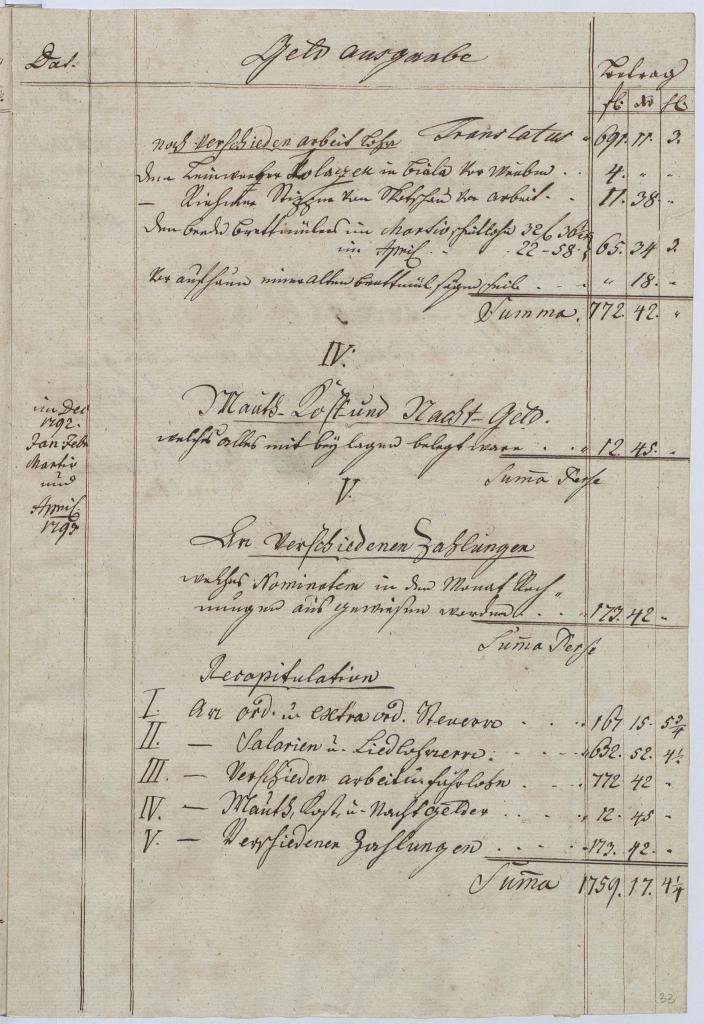 Dat.
Geld ausgaabe
Betrag
fl. Xr ₰
noch verschieden arbeit Lohn Translatus " 691. 11. 3.
dem Leinweeber Kolaczek in Biala vor weeben . . 4. " "
— Riehmer von Skotschau vor arbeit . . 17. 38. "
den beede Brettmüllers im Martio 32 f 36
im April . . 22 - 58. 65. 34 3.
vor auf einer alten brettmühl . . . " 18. "
Summa. 772. 42. "
IV.
Mauth- Kost und Nacht-Geld.
im Dec
1792.
Jan: Feb:
Martii
und
April
1793
welches alles mit beylagen belegt ware . . " 12. 45. "
Summa Perse
V.
An Verschiedenen Zahlungen
welches Nominatem in den Monat Rech„
nungen aus gewiesen worden . . " 173. 42 "
Summa Perse
Recapitulation
I. An ord. u. extra ord. Steuern . . . 167 15. 5 3/4
II. — Salarien u. Liedlohnern . . . " 632. 52. 4 1/2
III. — Verschieden arbeit u. fuhrlohn . . . 772 42 "
IV. — Mauth, Kost, u. Nacht gelder . . . " 12. 45 "
V. — Verschiedenen Zahlungen . . . 173. 42. "
Summa 1759. 17. 4 1/4
33